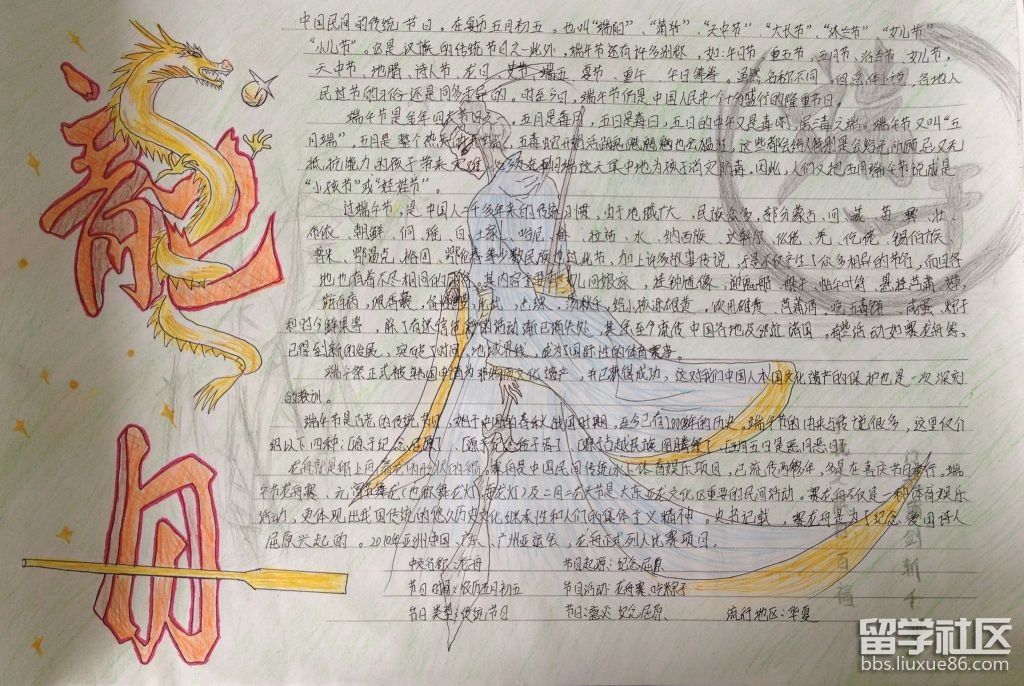 龍
舟
端午
中国民间的传统节日。在每年五月初五。也叫“端阳”、“蒲节”、“天中节”、“大长节”、“沐兰节”、“女儿节”
“小儿节”。它是汉族的传统节日之一此外，端午节还有许多别称，如：午日节、重五节、五月节、浴兰节、女儿节，
天中节、地腊、诗人节、龙日、艾节、端五、夏节、重午、午日等等。虽然名称不同，但总体上说，各地人
民过节的习俗还是同多于异的。时至今日，端午节仍是中国人民中一个十分盛行的隆重节日。
端午节是全年四大节日之一，五月是毒月，五日是毒日，五日的中午又是毒时，居三毒之端。端午节又叫“五
月端”，五月是整个热天的开端，五毒
抵抗能力的孩子带来灾难，必须在五月端这天集中地为孩子消灾防毒。因此，人们又把五月端午节说成是
“小孩节”或“娃娃节”。
过端午节，是中国人二千多年来的传统习惯，由于地域广大，民族众多，部分蒙古、回、藏、苗、彝、壮、
布依、朝鲜、侗、瑶、白、土家、哈尼、畲、拉祜、水、纳西族、达斡尔、仫佬、羌、仡佬、锡伯族、
普米、鄂温克、裕固、鄂伦春等少数民族也过此节，加上许多故事传说，于是不仅产生了众多相异的节名，而且各
地也有着不尽相同的习俗。其内容主要有：女儿回娘家、挂钟馗像、迎鬼船、躲午、帖午叶符、悬挂菖蒲、艾草、
游百病，佩香囊、备牲醴、
和时令鲜果等，除了有迷信色彩的活动渐已消失外，其余至今流传中国各地及邻近诸国。有些活动如赛龙舟等，
已得到新的发展，突破了时间、地域界线，成为了国际性的体育赛事。
端午祭正式被韩国申请为非物质文化遗产，并已获得成功，这对我们中国人本国文化遗产的保护也是一次深刻
的教训。
端午节是古老的传统节日，始于中国的春秋战国时期，至今已有2000多年的历史。端午节的由来与传说很多，这里仅介
绍以下四种：[源于纪念屈原]
龙舟就是船上画着龙的形状的船。赛龙舟是中国民间传统水上体育娱乐项目，已流传两千多年，多是在喜庆节日举行。端
午节龙舟赛、元宵节舞龙（也称舞龙灯、耍龙灯）及二月二龙头节是大东亚龙文化区重要的民间活动。赛龙舟不仅是一种体育娱乐
活动，更体现出我国传统的悠久历史文化继承性和人们的集体主义精神。史书记载，赛龙舟是为了纪念爱国诗人
屈原兴起的。2010年亚洲中国、广东、广州亚运会，龙舟正式列入比赛项目。
中文名称：龙舟　节日起源：纪念屈原
节日时间：农历五月初五　节日活动：龙舟赛、吃粽子
节日类型：传统节日　节日意义：纪念屈原　流行地区：华夏
留学社区
bbs.liuxue86.com